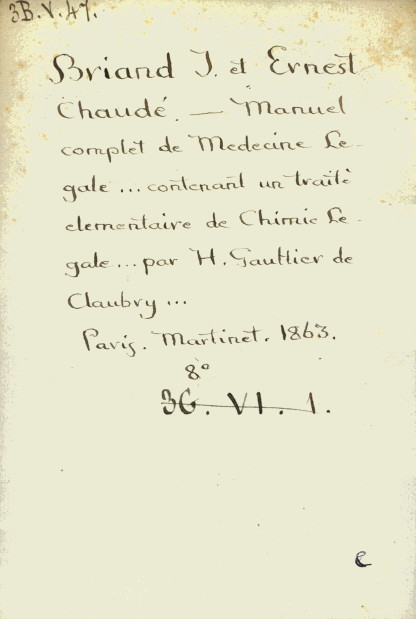 3B.V.47.
Briand J. et Ernest
Chaudé. — Manuel
complet de Medecine Le-
gale ... contenant un traité
elementaire de Chimie Le-
gale ... par H. Gaultier de
Claubry ...
Paris. Martinet. 1863.
8º
3G. VI. 1.
e